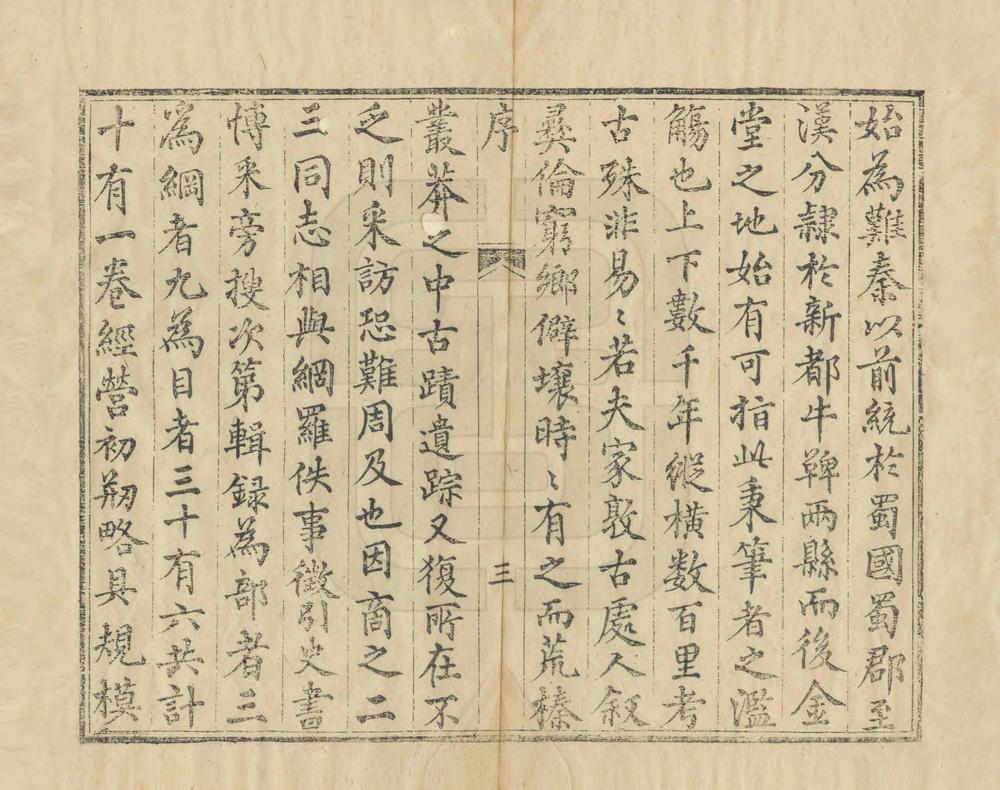 始為難秦以前統於蜀國蜀郡至
漢分隸於新都牛鞞兩縣而後金
堂之地始有可指此秉筆者之濫
觴也上下數千年縱橫数百里考
古殊非易〻若夫家敦古處人敘
彞倫窮鄉僻壤時〻有之而荒榛
序
三
叢莽之中古蹟遺踪又復所在不
乏則采訪恐難周及也因商之二
三同志相與網羅佚事徵引史書
博采旁搜次第輯録為部者三
為綱者九為目者三十有六共計
十有一卷經營初剏略具規模